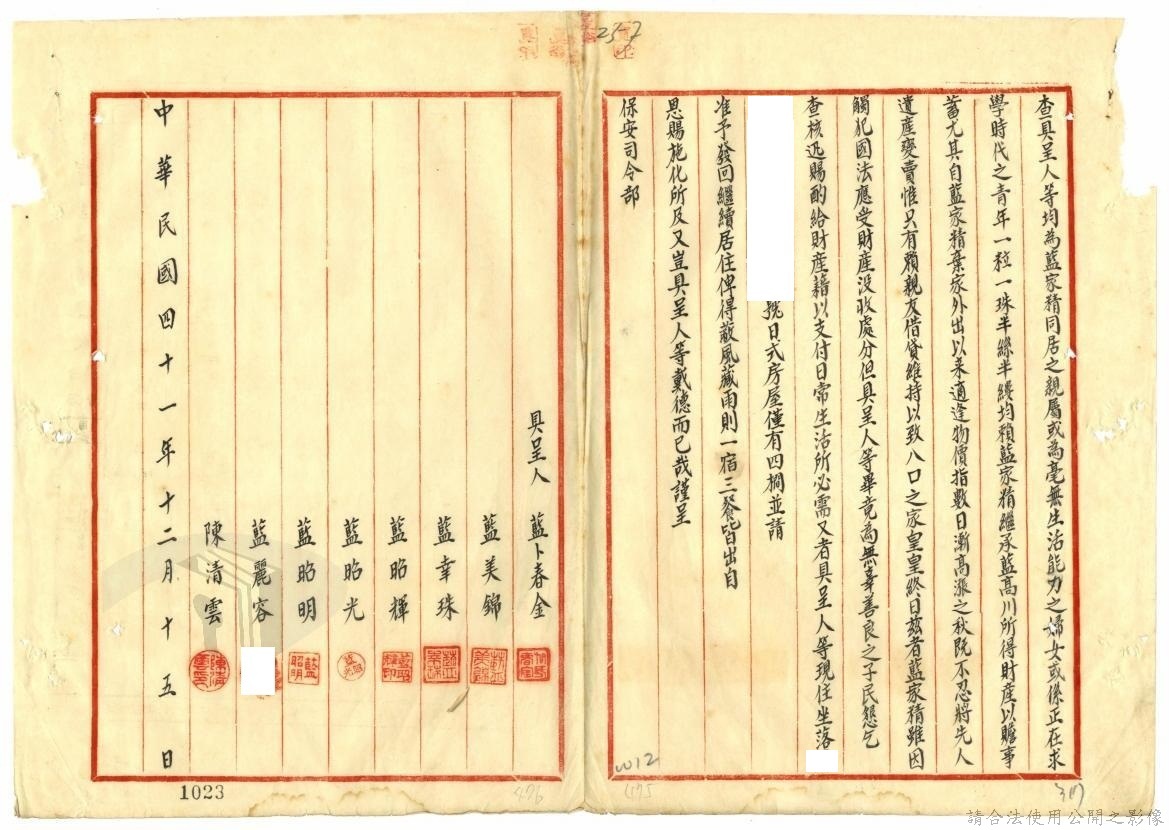 257
查具呈人等均為藍家精同居之親屬或為毫無生活能力之婦女或係正在求
學時代之青年一粒一珠半絲半縷均賴藍家精繼承藍高川所得財產以贍事
蓄尤其自藍家精棄家外出以来適逢物價指數日漸高漲之秋既不忍將先人
遺產變賣惟只有賴親友借貸維持以致八口之家皇皇終日茲者藍家精雖因
觸犯國法應受財產没收處分但具呈人等畢竟為無辜善良之子民懇乞
查核迅賜酌給財產藉以支付日常生活所必需又者具呈人等現住坐落
號日式房屋僅有四橺並請
准予發回繼續居住俾得蔽風藏雨則一宿三餐皆出自
恩賜施化所及又豈具呈人等戴德而已哉謹呈
保安司令部
具呈人 藍卜春金
藍美錦
藍幸珠
藍昭輝
藍昭光
藍昭明
藍麗容
陳清雲
中華民國四十一年十二月十五日
藍昭明
陳清雲印
1023
476
W12
475
請合法使用公開之影像